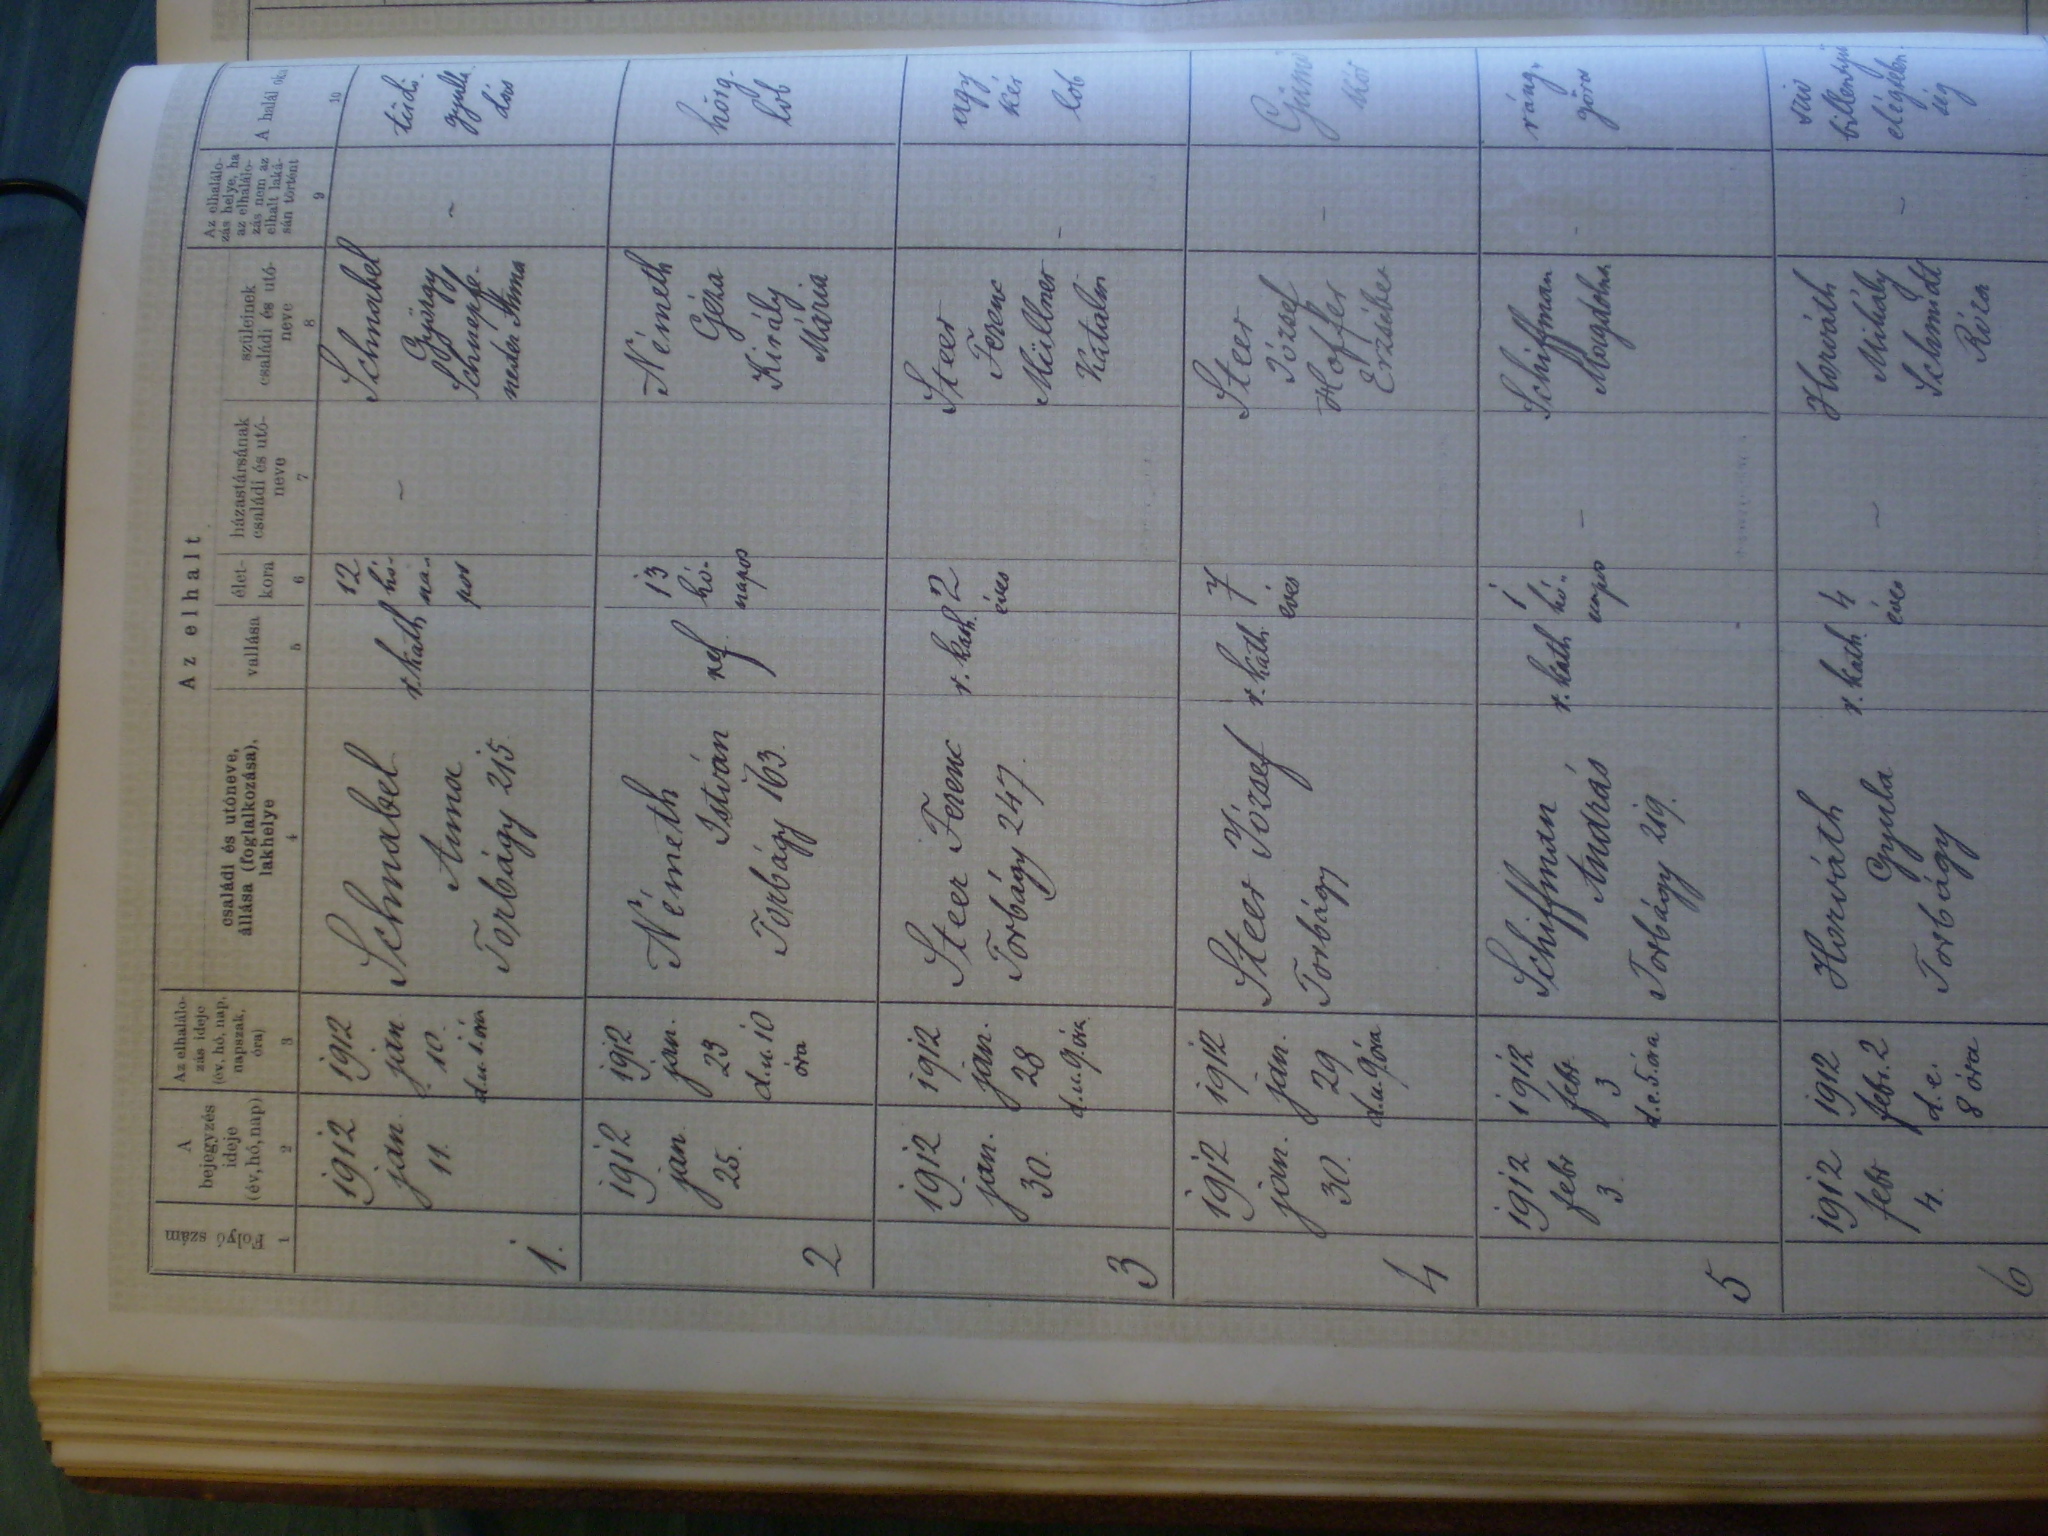 Az elhalt
Folyó
szám
A
bejegyzés
ideje
(év, hó, nap)
Az elhalálo-
zás ideje
(év, hó, nap,
napszak,
óra)
családi és utóneve,
állása (foglalkozása),
lakhelye
vallása
élet-
kora
házastársának
családi és utó-
neve
szüleinek
családi és utó-
neve
Az elhalálo-
zás helye, ha
az elhalálo-
zás nem az
elhalt laká-
sán történt
A halál oka
1
2
3
4
5
6
7
8
9
10
1.
1912
jan.
11.
1912
jan.
10.
d.u. 1 óra
Schnabel
Anna
Torbágy 215.
r. kath
12
hó-
na-
pos
–
Schnabel
György
neder Anna
–
tüdő
gyulla-
dás
2
1912
jan.
25.
1912
jan.
23
d.u. 10
óra
Németh
István
Torbágy 163.
ref
13
hó-
napos
Németh
Géza
Király
Mária
hörg-
lob
3
1912
jan.
30.
1912
jan.
28
d.u. 9 óra.
Steer Ferenc
Torbágy 247.
r. kath.
2
éves
Steer
Ferenc
Müllner
Katalin
–
agy
kér
lob
4
1912
jan.
30.
1912
jan.
29
d.u. 9 óra
Steer József
Torbágy
r. kath.
7
éves
Steer
József
Hoffer
Erzsébet
–
Gümő
kór
5
1912
febr
3.
1912
febr.
3
d.e. 5. óra
Schiffman
András
Torbágy 219.
r. kath
1
hó-
napos
–
Schiffman
Magdolna
-
ráng-
görcs
6
1912
febr
4.
1912
febr. 2
d.e.
8 óra
Horváth
Gyula
Torbágy
r. kath.
4
éves
–
Horváth
Mihály
Schmidt
Róza
–
szív
billentyű
elégtelen-
ség